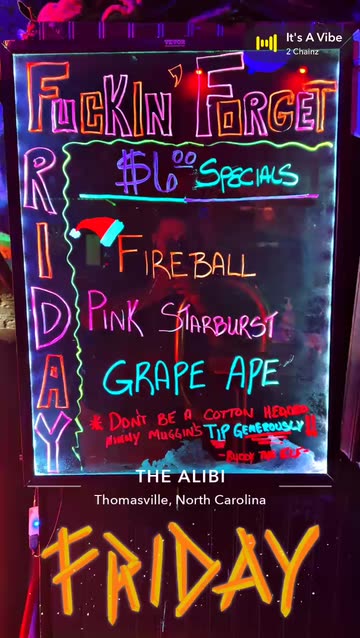 It's A Vibe
2 Chainz
FUCKIN' FORGET
RIDAY
$6.00 SPECIALS
FIREBALL
PINK STARBURST
GRAPE APE
* DON'T BE A COTTON HEADED
NINNY MUGGINS TIP GENEROUSLY!!
-BUDDY THE ELF-
THE ALIBI
Thomasville, North Carolina
FRIDAY